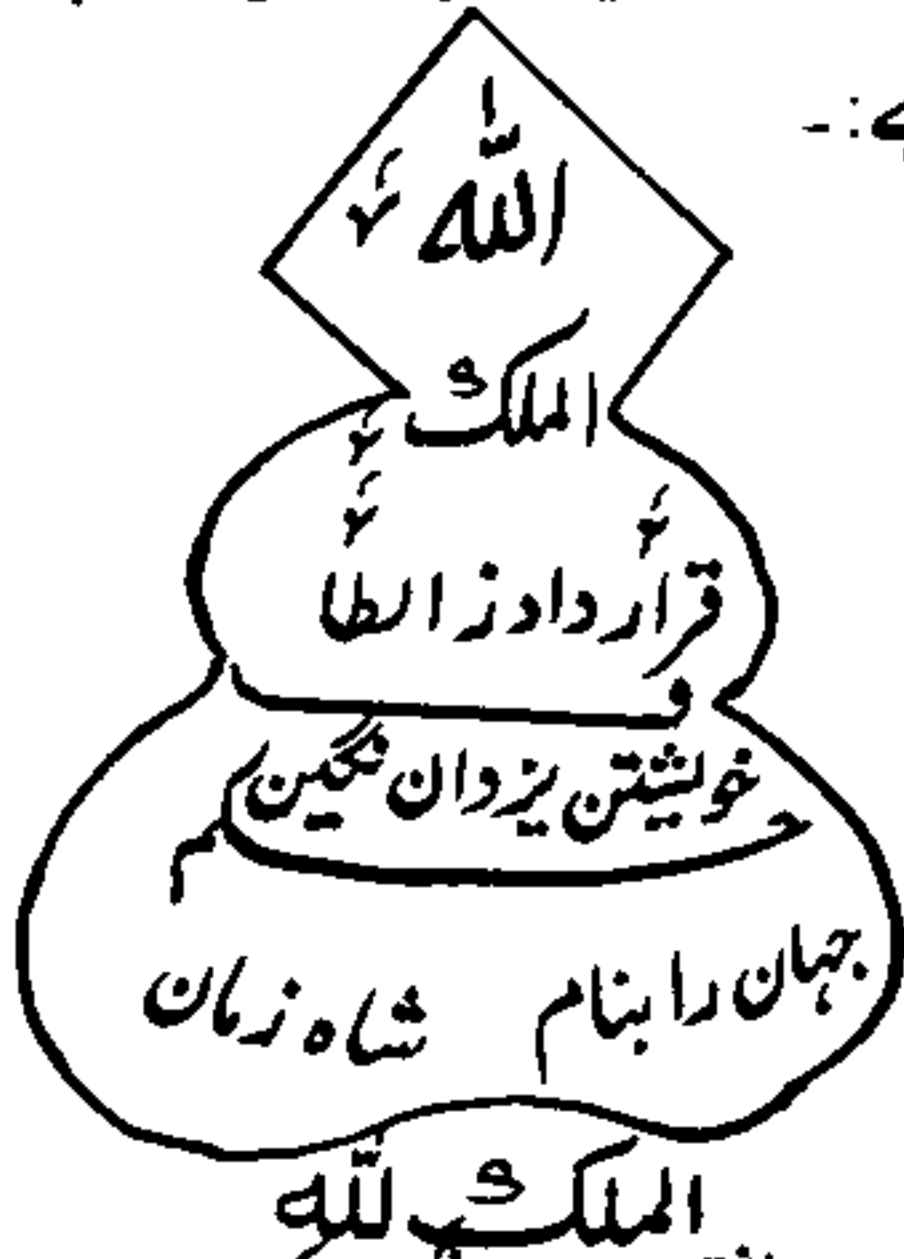 ے:-
اللّٰه
الملک
قرار داد ز الطا
ف
خویشتن یزدان نگین
حکم
جهان را بنام شاه زمان
الملک للّٰه